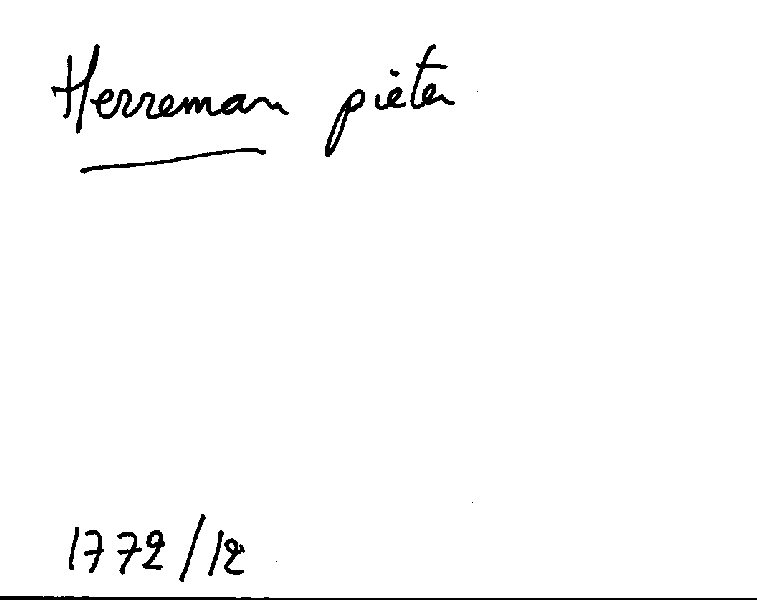 Herreman pieter
1772/12